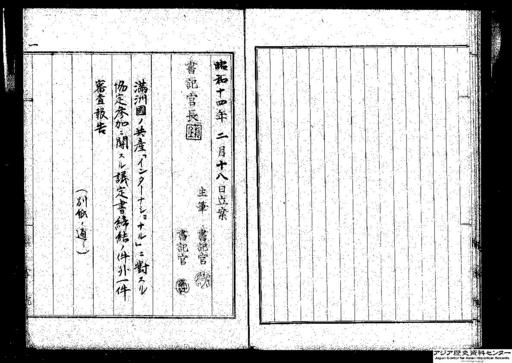 一
昭和十四年二月十八日立案
書記官長
主筆 書記官
書記官
満洲國ノ共産「インターナショナル」ニ對スル
協定参加ニ關スル議定書締結ノ件外一件
審査報告
(別紙ノ通)
アジア歴史資料センター
Japan Center for Asian Historical Records